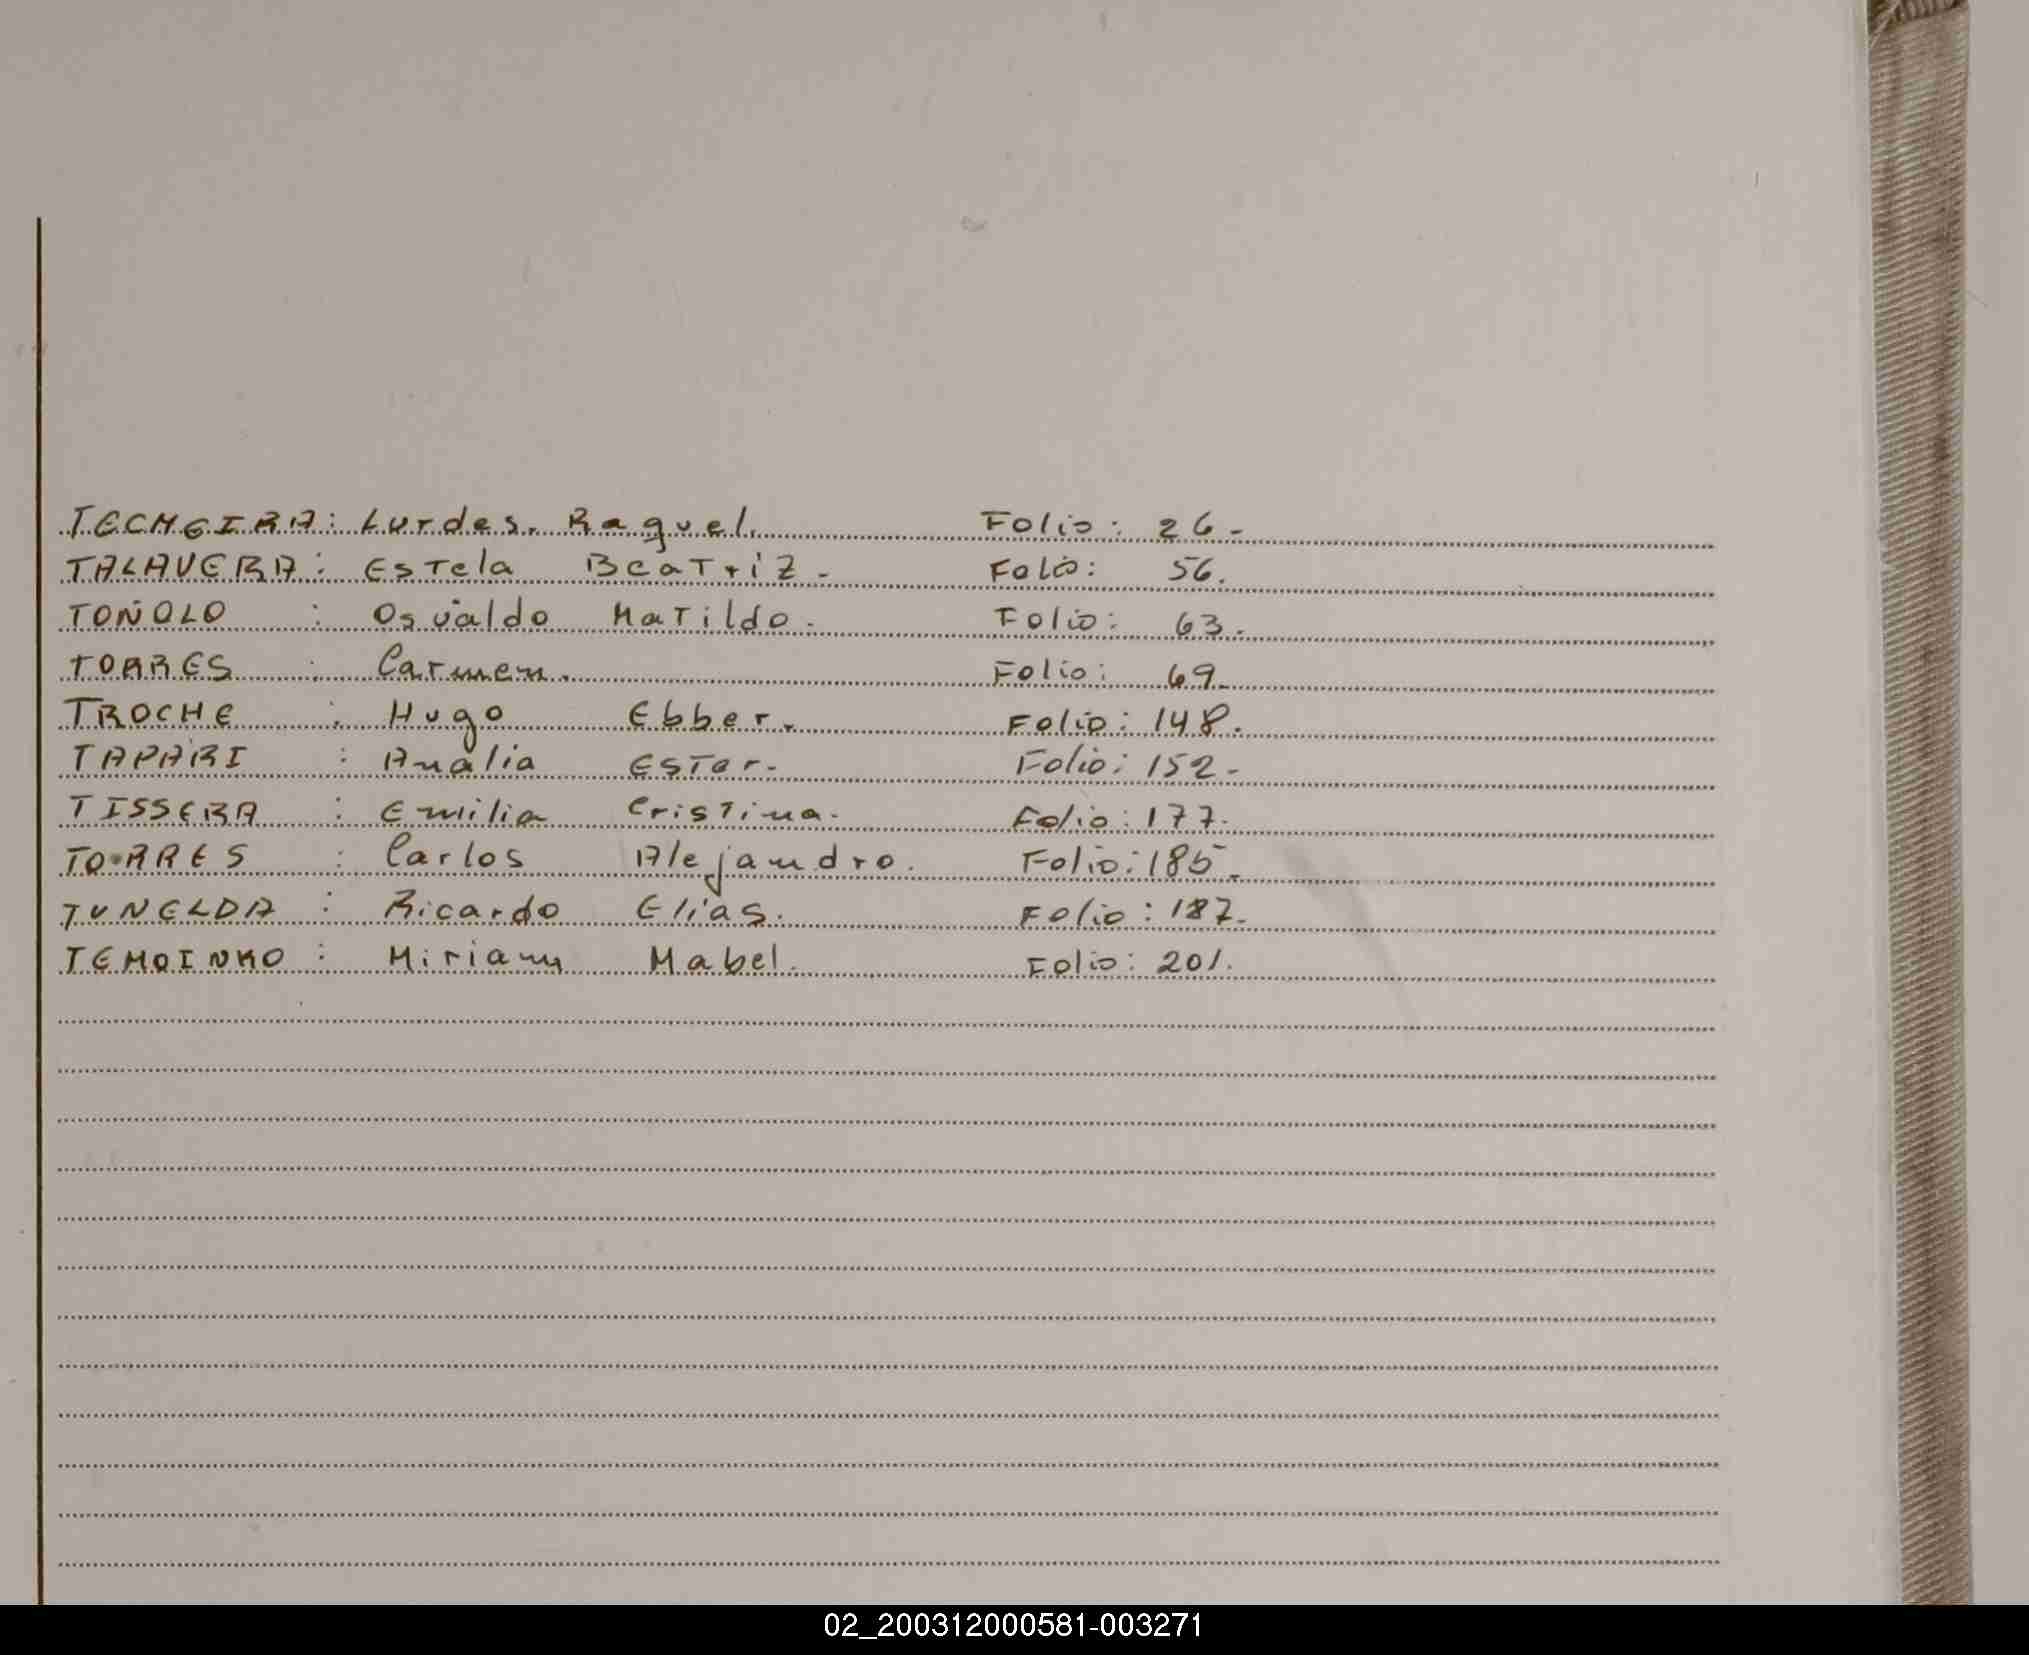 TECHEIRA: Lurdes. Raquel. Folio: 26.-
TALAVERA: Estela Beatriz.- Folio: 56.
TOÑOLO : Osvaldo Matildo. Folio: 63.
TORRES : Carmen. Folio: 69.
TROCHE : Hugo Ebber. Folio: 148.
TAPARI : Analia Ester.- Folio: 152.-
TISSERA : Emilia Cristina. Folio: 177.
TORRES : Carlos Alejandro. Folio: 185.
TUNELDA : Ricardo Elias. Folio: 187.
TEMOINKO : Miriam Mabel. Folio: 201.
02_200312000581-003271